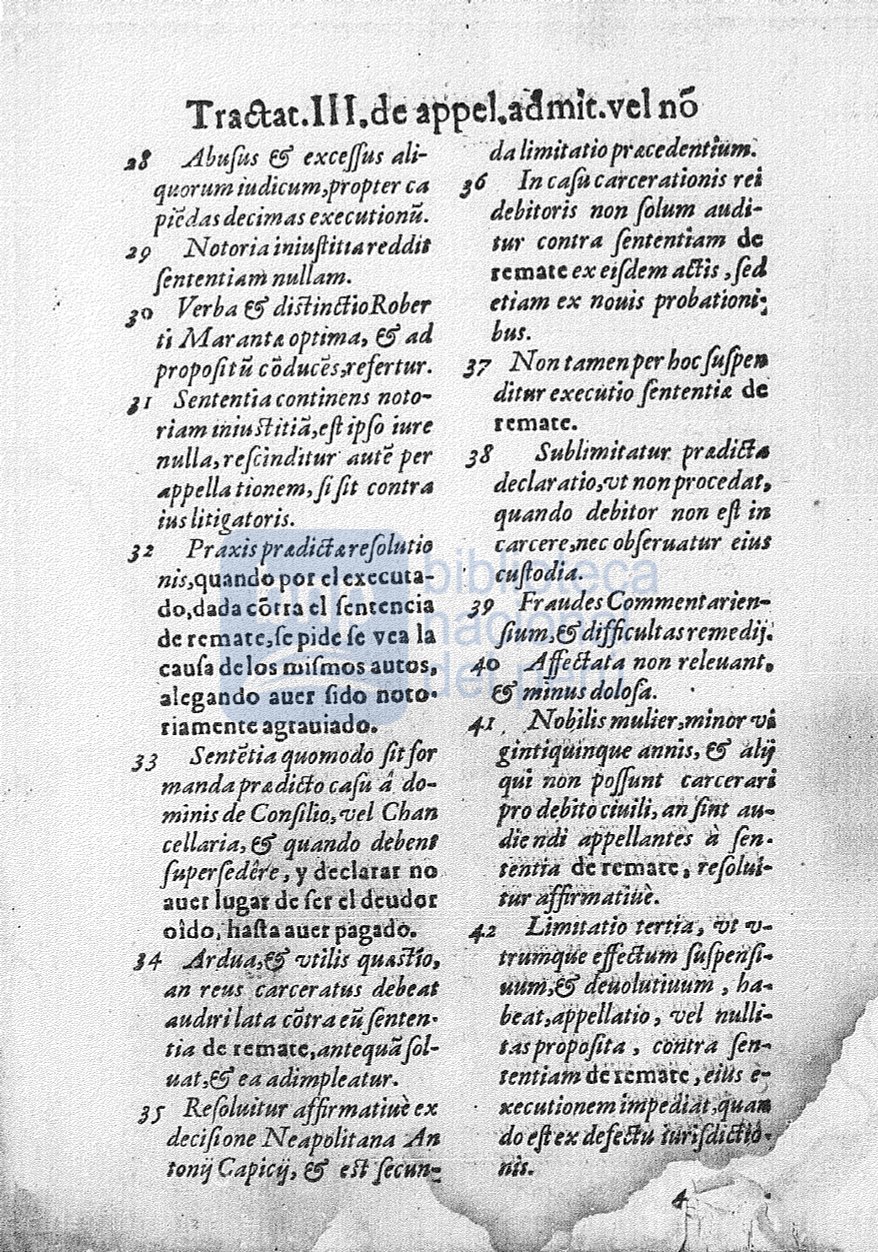 Tractat.III.de appel.admit.vel nõ
28 Abuſus & exceſſus ali-
quorum iudicum,propter ca
piẽdas decimas executionũ.
29 Notoria iniuſtitia reddit
ſententiam nullam.
30 Verba & diſtinctio Rober
ti Marantæ optima, & ad
propoſitũ cõducẽs,refertur.
31 Sententia continens noto-
riam iniuſtitiã,eſt ipſo iure
nulla,reſcinditur autẽ per
appellationem, ſi ſit contra
ius litigatoris.
32 Praxis prædictæ reſolutio
nis,quando por el executa-
do,dada cõtra el ſentencia
de remate,ſe pide ſe vea la
cauſa de los miſmos autos,
alegando auer ſido noto-
riamente agrauiado.
33 Sentẽtia quomodo ſit for
manda prædicto caſu â do-
minis de Conſilio,vel Chan
cellaria, & quando debent
ſuperſedêre, y declarar no
auer lugar de ſer el deudor
oìdo, haſta auer pagado.
34 Ardua,& vtilis quæstio,
an reus carceratus debeat
audiri lata cõtra eũ ſenten-
tia de remate,antequã ſol-
uat,& ea adimpleatur.
35 Reſoluitur affirmatiuè ex
deciſione Neapolitana An
tonij Capicij, & est ſecun-
da limitatio præcedentium.
36 In caſu carcerationis rei
debitoris non ſolum audi-
tur contra ſententiam de
remate ex eiſdem actis, ſed
etiam ex nouis probationi-
bus.
37 Non tamen per hoc ſuſpen
ditur executio ſententiæ de
remate.
38 Sublimitatur prædicta
declaratio,vt non procedat,
quando debitor non eſt in
carcere,nec obſeruatur eius
cuſtodia.
39 Fraudes Commentarien-
ſium,& difficultas remedij.
40 Affectata non releuant,
& minus doloſa.
41 Nobilis mulier,minor vi
gintiquinque annis, & alij
qui non poſſunt carcerari
pro debito ciuili, an ſint au-
diendi appellantes à ſen-
tentia de remate, reſolui-
tur affirmatiuè.
42 Limitatio tertia, vt v-
trumque effectum ſuſpenſi-
uum,& deuolutiuum, ha-
beat,appellatio, vel nulli-
tas propoſita, contra ſen-
tentiam de remate, eius e-
xecutionem impediat,quan
do eſt ex defectu iurisdictio-
nis.
4